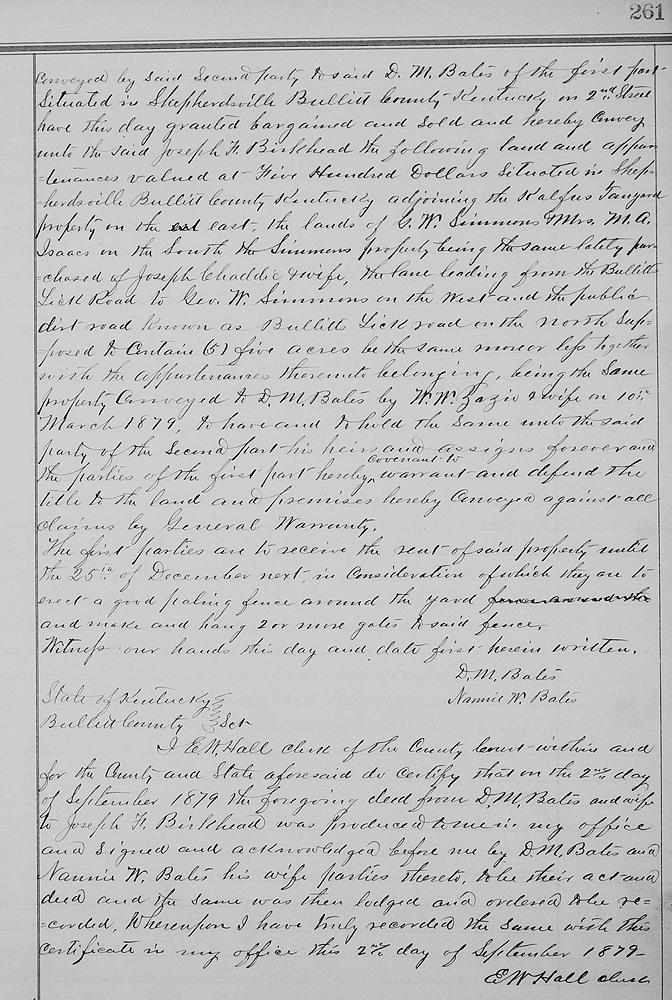 261
Conveyed by said Second party to said D. M. Bates of the first part
Situated in Shepherdsville Bullitt County Kentucky on 2nd. Street
have this day granted bargained and Sold and hereby Convey
unto the said Joseph F. Birkhead the following land and appur
=tenances valued at Five Hundred Dollars Situated in Shep=
=herdsville Bullitt County Kentucky adjoining the Kalfus Tanyard
property on the east, the lands of G. W. Simmons & Mrs. M. A.
Isaacs on the South the Simmons property being the same lately pur=
=chased of Joseph Chaddic & wife, the lane leading from the Bullitt
Lick Road to Geo. W. Simmons on the West and the public
dirt road Known as Bullitt Lick road on the north Sup=
=posed to Contain (5) five acres be the same more or less together
with the appurtenances thereunto belonging, being the Same
property Conveyed to D. M. Bates by W. W. & wife on 10th
March 1879, to have and to hold the Same unto the said
party of the Second part his heirs and assigns forever and
the parties of the first part hereby covenant to warrant and defend the
title to the land and premises hereby Conveyed against all
claims by General Warranty.
The first parties are to receive the rent of said property until
the 25th of December next, in Consideration of which they are to
erect a good paling fence around the yard
and make and hang 2 or more gates to said fence.
Witness our hands this day and date first herein written.
D. M. Bates
Nannie W. Bates
State of Kentucky
Bullitt County Sct
I E W Hall clerk of the County Court within and
for the County and State aforesaid do certify that on the 2nd day
of September 1879 the foregoing deed from D. M. Bates and wife
to Joseph F. Birkhead was produced to me in my office
and signed and acknowledged before me by D. M. Bates and
Nannie W. Bates his wife parties thereto, to be their act and
deed and the same was then lodged and ordered to be re=
=corded, Whereupon I have truly recorded the Same with this
certificate in my office this 2nd day of September 1879-
E W Hall clerk